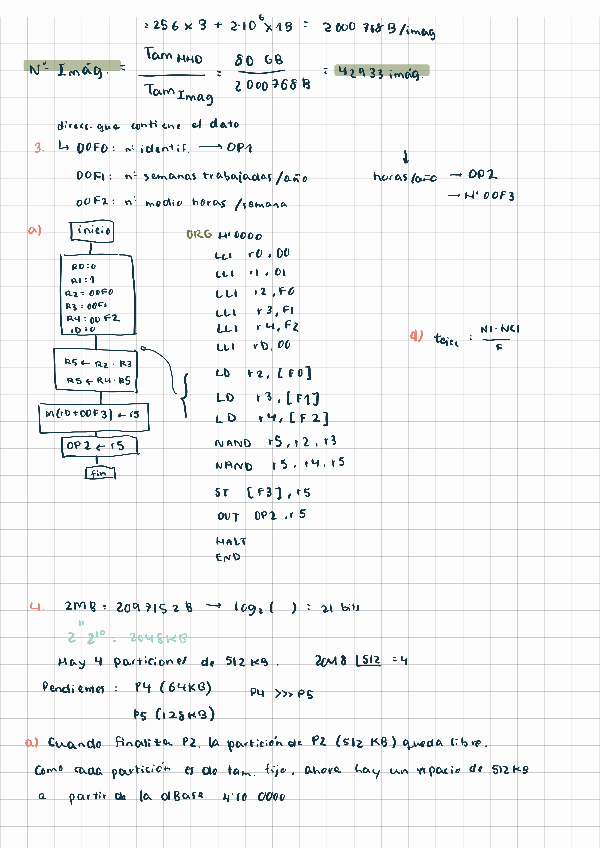 = 256 x 3 + 2·10⁶ x 1B = 2000 768 B/imag
Nº Imág. = Tam HHD / Tam Imag = 80 GB / 2000768 B = 42933 imág.
direcc. que contiene el dato
3. ↳ 00F0: nº identif. → OP1
00F1: nº semanas trabajadas/año
00F2: nº medio horas/semana
↓
horas/año → OP2
→ H'00F3
a) inicio
R0=0
R1=1
R2=00F0
R3=00F1
R4=00F2
rD=0
R5 ← R2·R3
R5 ← R4·R5
M(rD+00F3) ← r5
OP2 ← r5
fin
ORG H'0000
LLI r0, 00
LLI r1, 01
LLI r2, F0
LLI r3, F1
LLI r4, F2
LLI rD, 00
LD r2, [F0]
LD r3, [F1]
LD r4, [F2]
NAND r5, r2, r3
NAND r5, r4, r5
ST [F3], r5
OUT OP2, r5
HALT
END
d) tejec = NI·NCI / F
4. 2MB = 2097152 B → log₂( ) = 21 bits
2¹¹ 2¹⁰ = 2048KB
Hay 4 particiones de 512 KB. 2048 | 512 = 4
Pendientes: P4 (64KB) P4 >>> P5
P5 (128KB)
a) Cuando finaliza P2, la partición de P2 (512 KB) queda libre.
Como cada partición es de tam. fijo, ahora hay un espacio de 512KB
a partir de la dBase H'10 0000